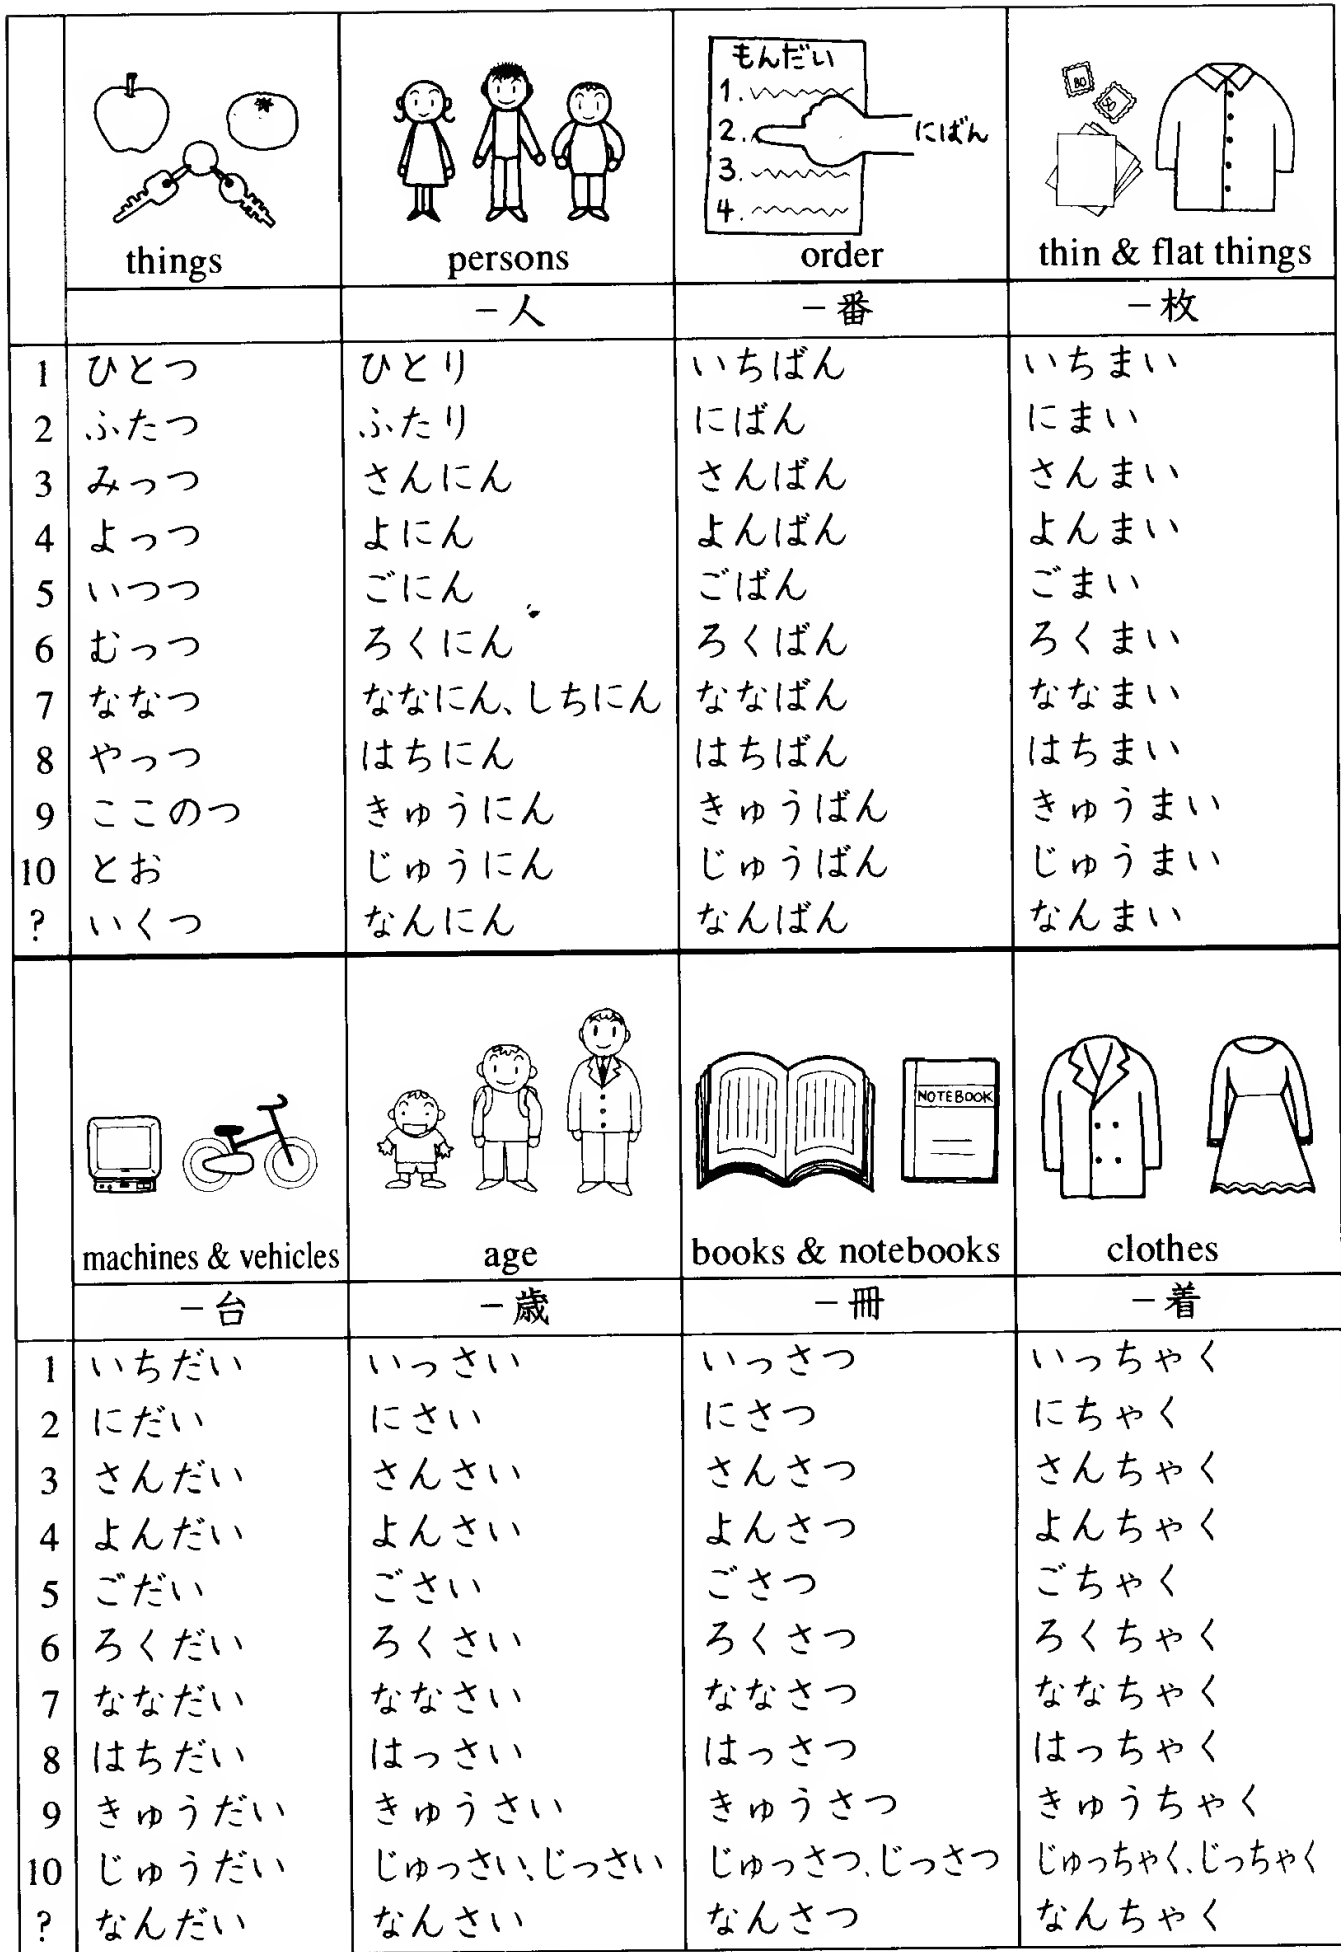 もんだい
1.
2.
3.
4.
にばん
80
things persons order thin & flat things
–人 –番 –枚
1 ひとつ ひとり いちばん いちまい
2 ふたつ ふたり にばん にまい
3 みっつ さんにん さんばん さんまい
4 よっつ よにん よんばん よんまい
5 いつつ ごにん ごばん ごまい
6 むっつ ろくにん ろくばん ろくまい
7 ななつ ななにん、しちにん ななばん ななまい
8 やっつ はちにん はちばん はちまい
9 ここのつ きゅうにん きゅうばん きゅうまい
10 とお じゅうにん じゅうばん じゅうまい
? いくつ なんにん なんばん なんまい
NOTEBOOK
machines & vehicles age books & notebooks clothes
–台 –歳 –冊 –着
1 いちだい いっさい いっさつ いっちゃく
2 にだい にさい にさつ にちゃく
3 さんだい さんさい さんさつ さんちゃく
4 よんだい よんさい よんさつ よんちゃく
5 ごだい ごさい ごさつ ごちゃく
6 ろくだい ろくさい ろくさつ ろくちゃく
7 ななだい ななさい ななさつ ななちゃく
8 はちだい はっさい はっさつ はっちゃく
9 きゅうだい きゅうさい きゅうさつ きゅうちゃく
10 じゅうだい じゅっさい、じっさい じゅっさつ、じっさつ じゅっちゃく、じっちゃく
? なんだい なんさい なんさつ なんちゃく